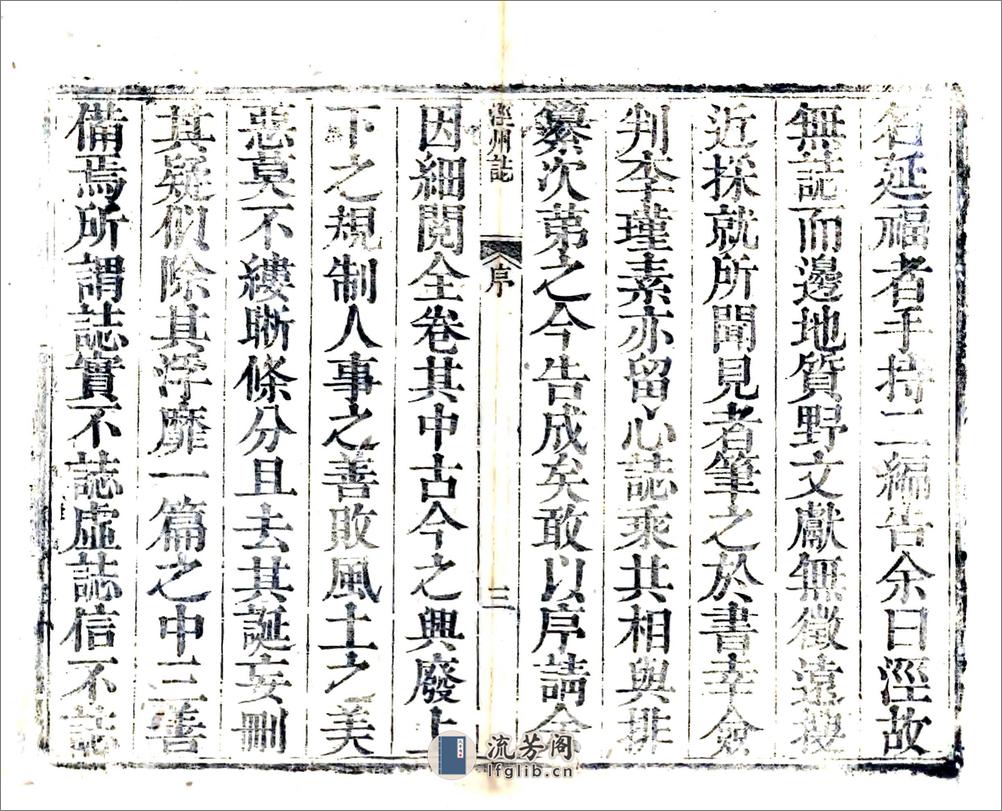 名延福者手持二編告余曰涇故
無誌而邊地質野文獻無徵遠搜
近採就所聞見者筆之於書幸僉
判李瑾素亦留心誌乘共相與排
纂次第之今告成矣敢以序請余
涇州誌
序
三
因細閱全卷其中古今之興廢上
下之規制人事之善敗風土之美
惡莫不縷晰條分且去其誕妄刪
其疑似除其浮靡一篇之中三善
備焉所謂誌實不誌虛誌信不誌
流芳阁
lfglib.cn